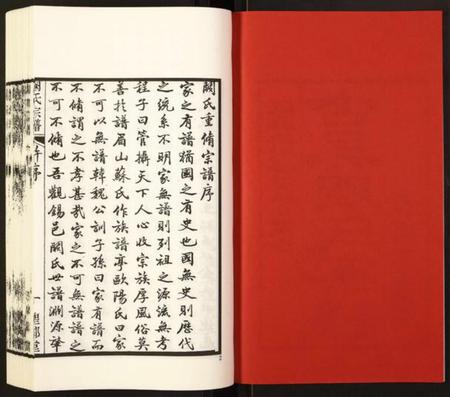 闕氏重脩宗譜序
家之有譜猶國之有史也國無史則歷代
之統系不明家無譜則列祖之源流無考
程子曰管攝天下人心收宗族厚風俗莫
善於譜眉山蘇氏作族譜亭歐陽氏曰家
不可以無譜韓魏公訓子孫曰家有譜而
不脩謂之不孝甚哉家之不可無譜譜之
不可不脩也吾觀錫邑闕氏世譜淵源
闕氏宗譜
序
一